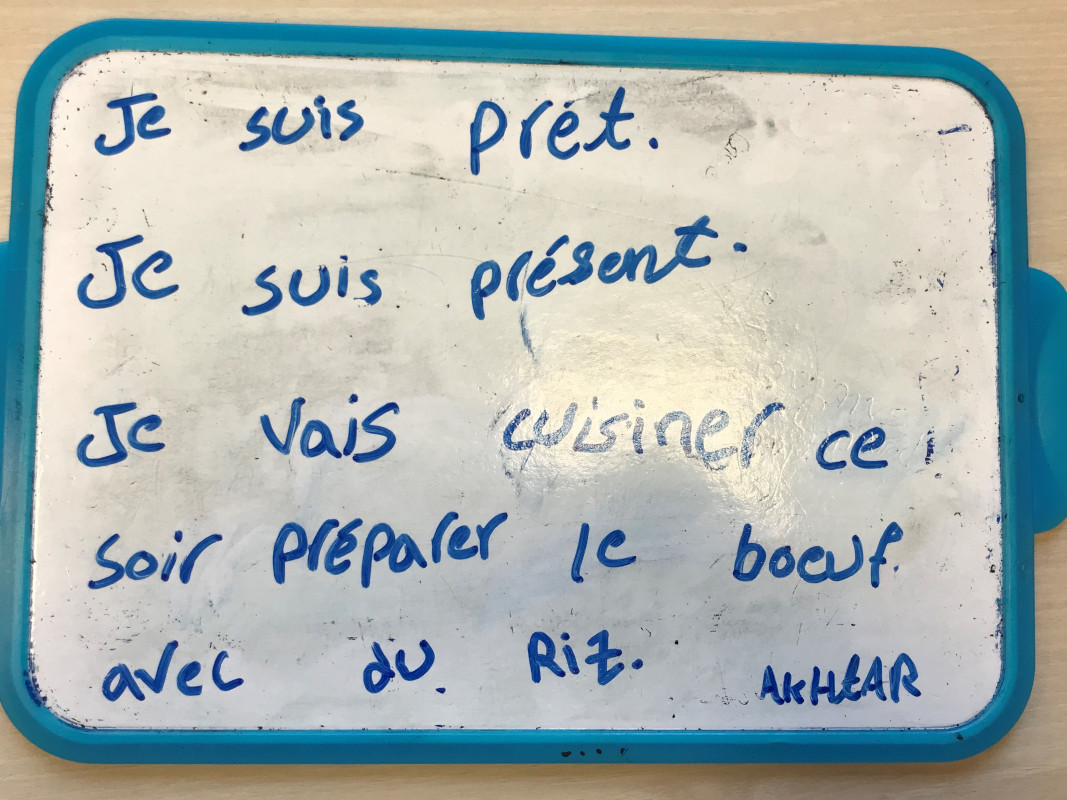 Je suis prét.
Je suis présent.
Je vais cuisiner ce
soir préparer le boeuf.
avec du Riz.
AKHtAR